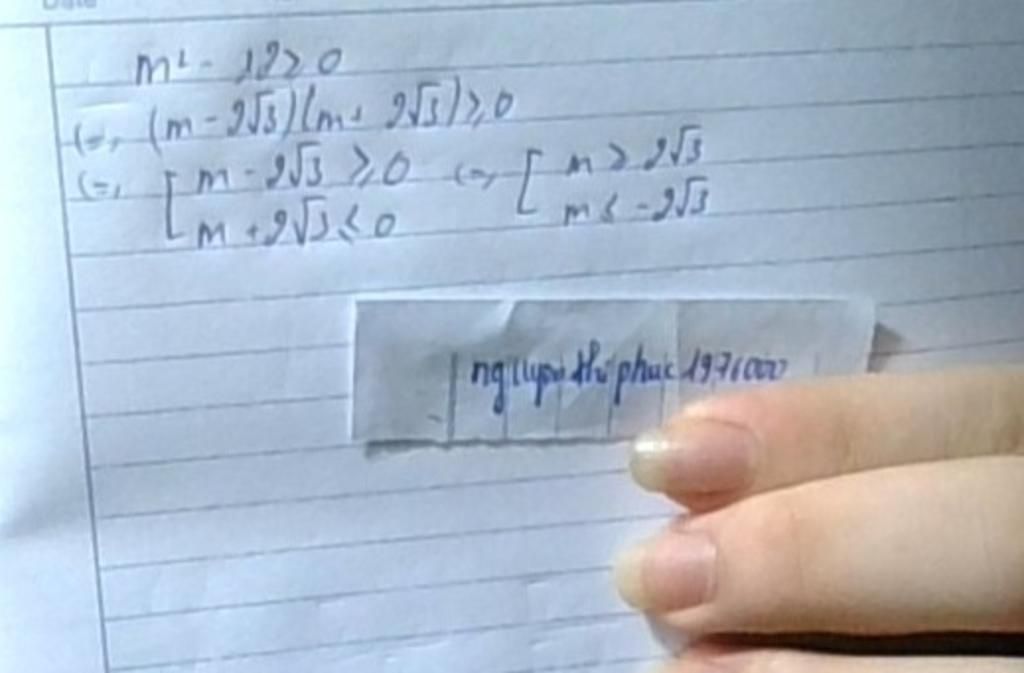 Date
m² - 12 ≥ 0
(=) (m - 2√3)(m + 2√3) ≥ 0
(=) [ m - 2√3 ≥ 0 (=) [ m ≥ 2√3
m + 2√3 ≤ 0 m ≤ -2√3
nguyen thi phuc 1976000